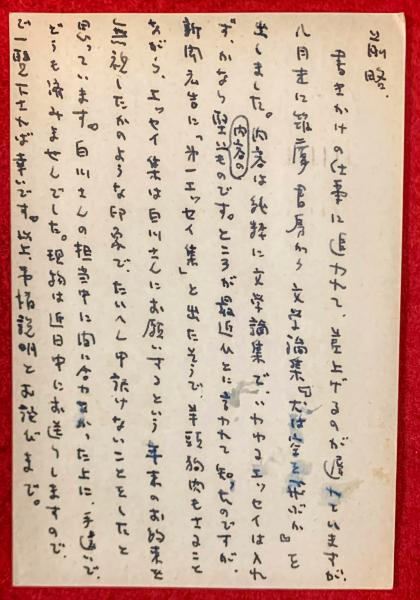 前略、
書きかけの仕事に追われて、差上げるのが遅れていますが
八月末に筑摩書房から文学論集『犬は空を飛ぶか』を
出しました。内容は純粋に文学論集で、いわゆるエッセイは入れ
ず、かなり内容の堅いものです。ところが最近ひとに言われて知ったのですが、
新聞広告に「第一エッセイ集」と出たそうで、羊頭狗肉もさること
ながら、エッセイ集は白川さんにお願いするという年来のお約束を
無視したかのような印象で、たいへん申訳けないことをしたと
思っています。白川さんの担当中に間に合わなかった上に、手違いで
どうも済みませんでした。現物は近日中にお送りしますので、
で一覧下されば幸いです。以上、事情説明とお詫びまで。